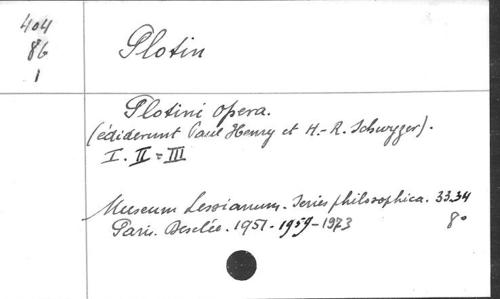 404
86
1
Plotin
Plotini opera.
(ediderunt Paul Henry et H.-R. Schwyzer).
I. II = III
Museum Lessianum. Series philosophica. 33.34
Paris. Desclée. 1951-1959-1973
8°